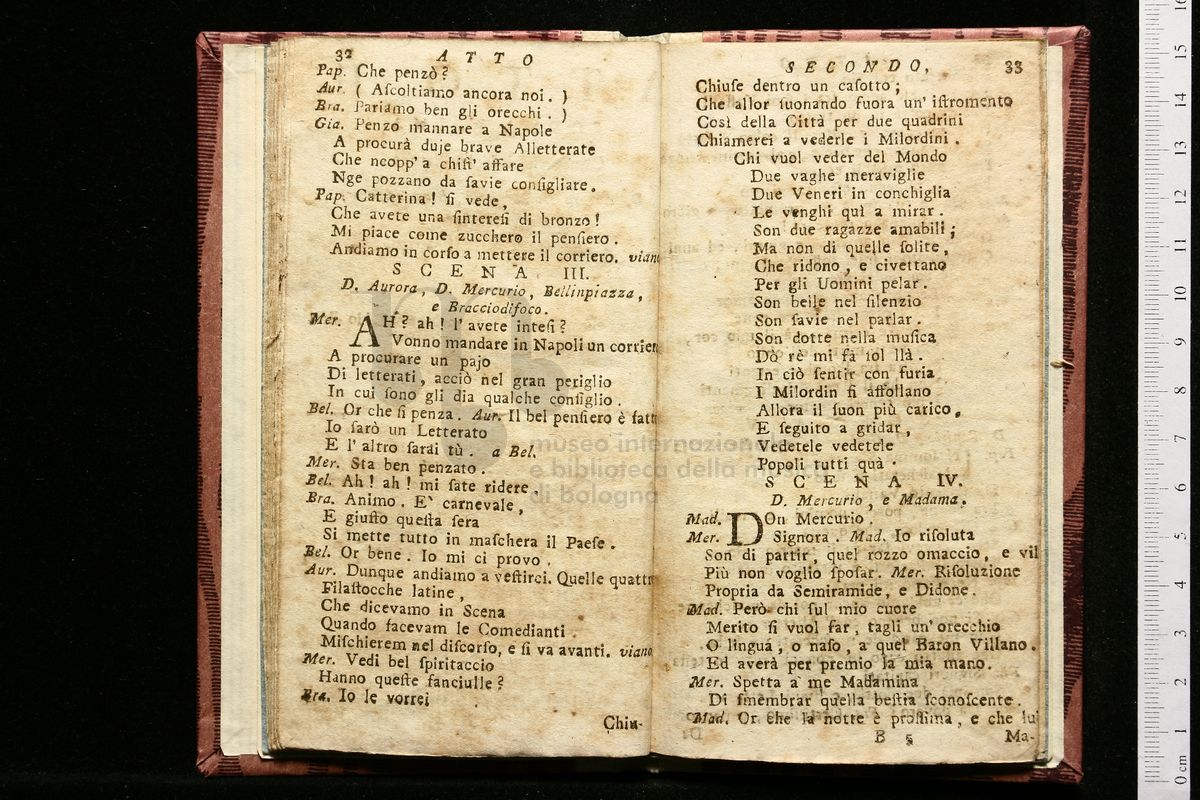 32 ATTO
Pap. Che penzò?
Aur. ( Aſcoltiamo ancora noi. )
Bra. Pariamo ben gli orecchi. )
Gia. Penzo mannare a Napole
A procurà duje brave Alletterate
Che ncopp' a chiſt' affare
Nge pozzano da ſavie conſigliare.
Pap. Catterina! ſi vede,
Che avete una ſintereſi di bronzo!
Mi piace come zucchero il penſiero.
Andiamo in corſo a mettere il corriero. viano
SCENA III.
D. Aurora, D. Mercurio, Bellinpiazza,
e Bracciodifoco.
Mer. AH? ah! l' avete inteſi?
Vonno mandare in Napoli un corriero
A procurare un pajo
Di letterati, acciò nel gran periglio
In cui ſono gli dia qualche conſiglio.
Bel. Or che ſi penza. Aur. Il bel penſiero è fatto
Io ſarò un Letterato
E l' altro ſarai tù. a Bel.
Mer. Sta ben penzato.
Bel. Ah! ah! mi fate ridere.
Bra. Animo. E' carnevale,
E giuſto queſta ſera
Si mette tutto in maſchera il Paeſe.
Bel. Or bene. Io mi ci provo.
Aur. Dunque andiamo a veſtirci. Quelle quattro
Filaſtocche latine,
Che dicevamo in Scena
Quando facevam le Comedianti.
Miſchierem nel diſcorſo, e ſi va avanti. viano
Mer. Vedi bel ſpiritaccio
Hanno queſte fanciulle?
Bra. Io le vorrei
Chiu-
SECONDO, 33
Chiuſe dentro un caſotto;
Che allor ſuonando fuora un' iſtromento
Così della Città per due quadrini
Chiamerei a vederle i Milordini.
Chi vuol veder del Mondo
Due vaghe meraviglie
Due Veneri in conchiglia
Le venghi quì a mirar.
Son due ragazze amabili;
Ma non di quelle ſolite,
Che ridono, e civettano
Per gli Uomini pelar.
Son belle nel ſilenzio
Son ſavie nel parlar.
Son dotte nella muſica
Dò rè mi fà ſol llà.
In ciò ſentir con furia
I Milordin ſi affollano
Allora il ſuon più carico,
E ſeguito a gridar,
Vedetele vedetele
Popoli tutti quà.
SCENA IV.
D. Mercurio, e Madama.
Mad. DOn Mercurio.
Mer. Signora. Mad. Io riſoluta
Son di partir, quel rozzo omaccio, e vil
Più non voglio ſpoſar. Mer. Riſoluzione
Propria da Semiramide, e Didone.
Mad. Però chi ſul mio cuore
Merito ſi vuol far, tagli un' orecchio
O linguá, o naſo, a quel Baron Villano.
Ed averà per premio la mia mano.
Mer. Spetta a me Madamina
Di ſmembrar quella beſtia ſconoſcente.
Mad. Or che la notte è proſſima, e che lui
B 5 Ma-
museo internazionale
e biblioteca della musica
di bologna